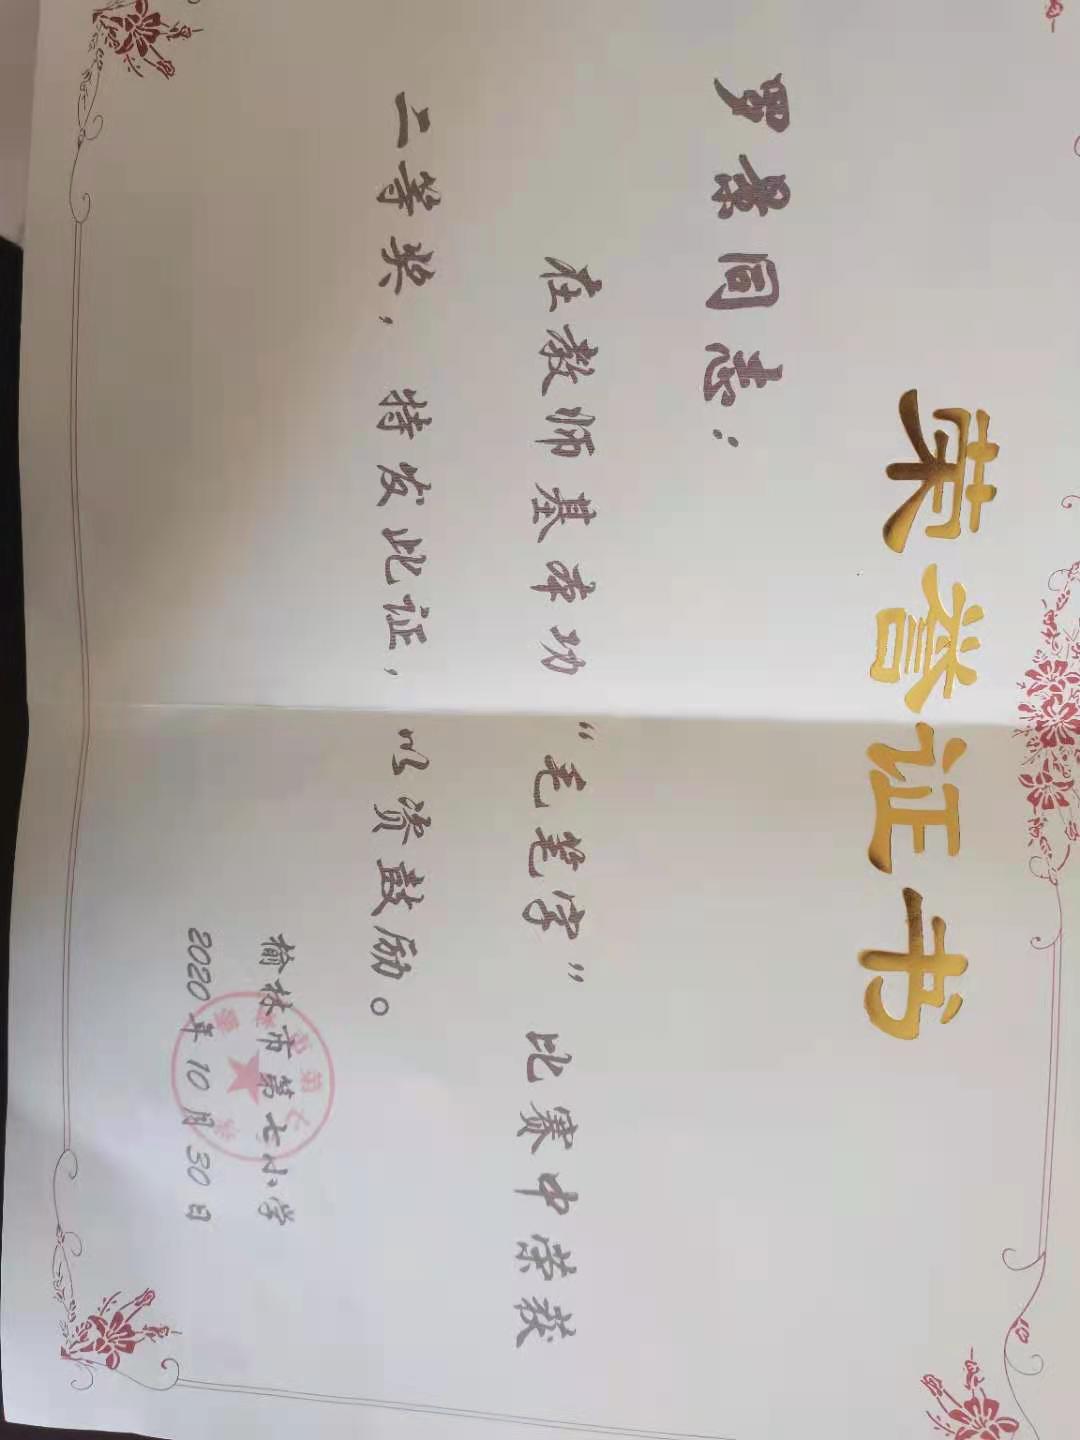 荣誉证书
罗景同志：
在教师基本功“毛笔字”比赛中荣获
二等奖，特发此证，以资鼓励。
榆林市第七小学
2020年10月30日